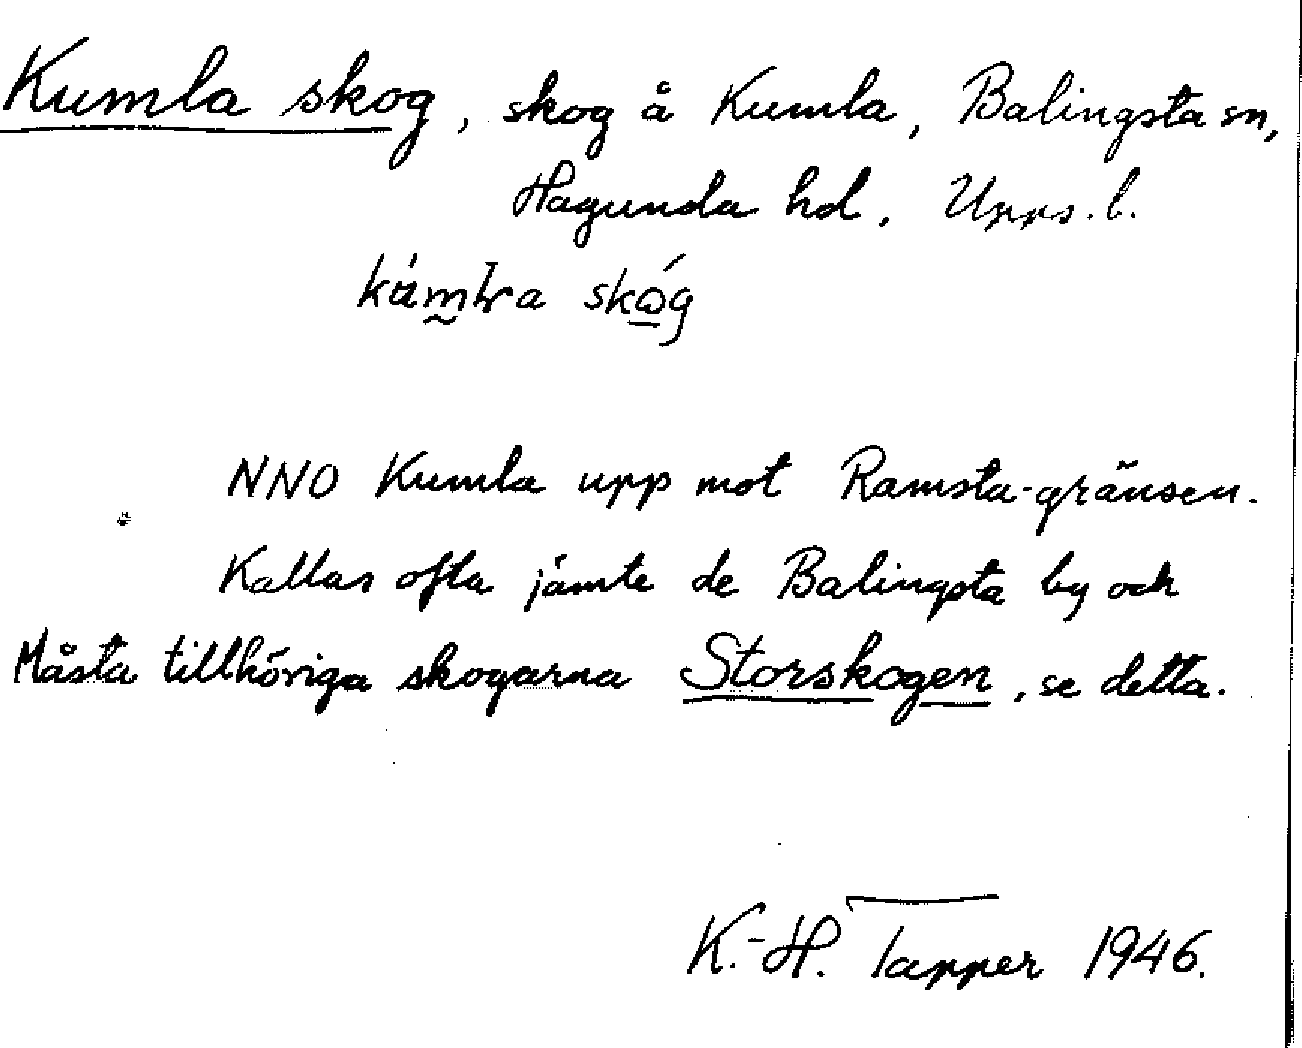 Kumla skog, skog å Kumla, Balingsta sn,
Hagunda hd. Upps. l.
skóg
NNO Kumla upp mot Ramsta-gränsen.
Kallas ofta jämte de Balingsta by och
Måsta tillhöriga skogarna Storskogen, se detta.
K.-H. Tapper 1946.